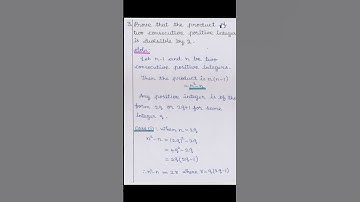 3) Prove that the product of
two consecutive positive integers
is divisible by 2.
Soln:
Let n-1 and n be two
consecutive positive integers.
Then the product is n(n-1)
= n²-n
Any positive integer is of the
form 2q or 2q+1 for some
integer q.
Case (i): When n = 2q
n²-n = (2q)²-2q
= 4q²-2q
= 2q(2q-1)
∴ n²-n = 2r where r = q(2q-1)